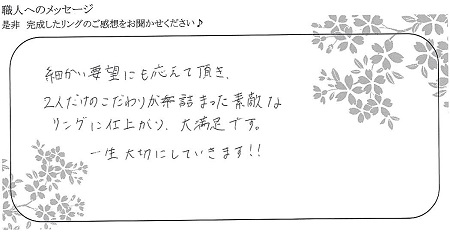 職人へのメッセージ
是非 完成したリングのご感想をお聞かせください♪
細かい要望にも応えて頂き、
2人だけのこだわりが沢山詰まった素敵な
リングに仕上がり、大満足です。
一生大切にしていきます!!